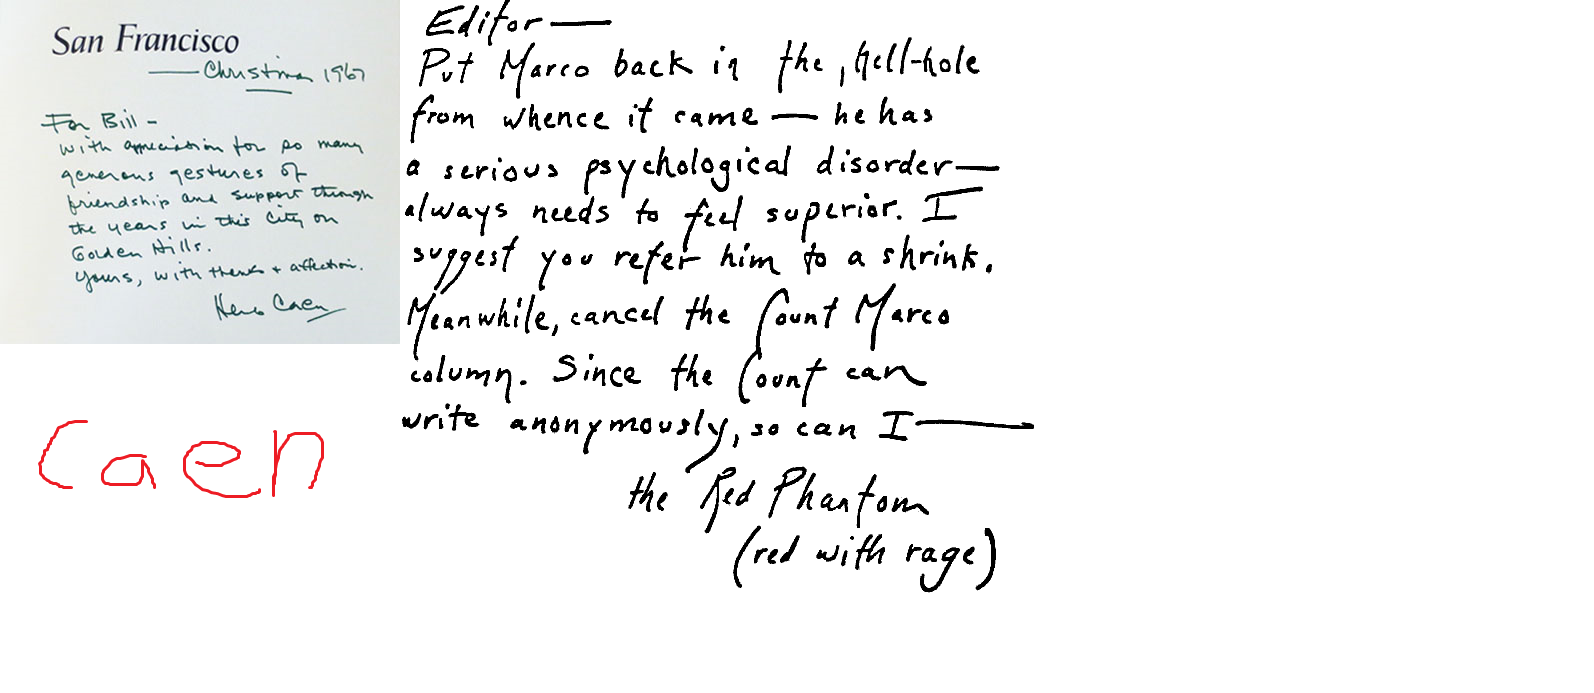 San Francisco
— Christmas 1967
For Bill -
with appreciation for so many
generous gestures of
friendship and support through
the years in this City on
Golden Hills.
Yours, with thanks + affection.
Herb Caen
Caen
Editor —
Put Marco back in the, hell-hole
from whence it came — he has
a serious psychological disorder —
always needs to feel superior. I
suggest you refer him to a shrink.
Meanwhile, cancel the Count Marco
column. Since the Count can
write anonymously, so can I —
the Red Phantom
(red with rage)